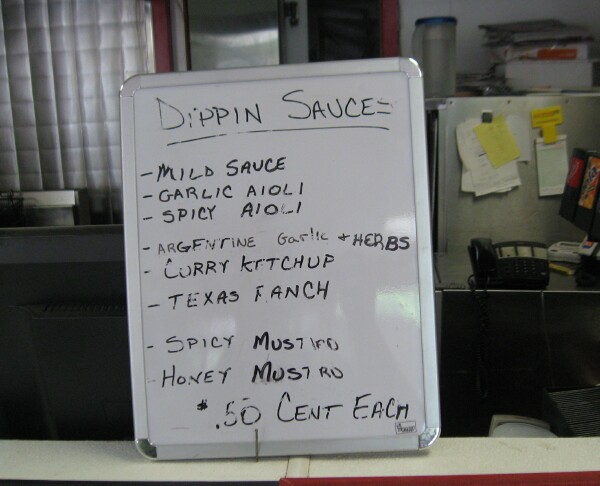 DIPPIN SAUCES
- MILD SAUCE
- GARLIC AIOLI
- SPICY AIOLI
- ARGENTINE Garlic + HERBS
- CURRY KETCHUP
- TEXAS RANCH
- SPICY MUSTARD
- HONEY MUSTRD
$.50 CENT EACH